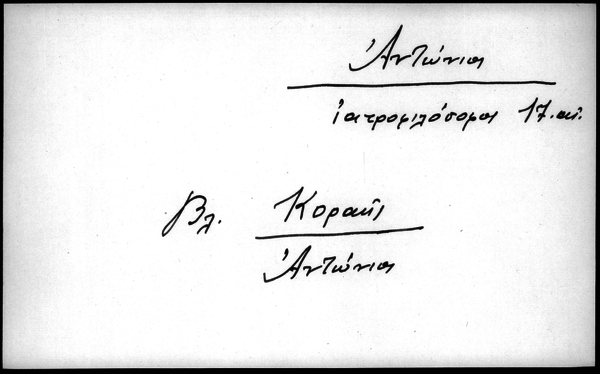 Ἀντώνιος
ἰατροφιλόσοφος 17. αἰ.
Βλ. Κορακῆς
Ἀντώνιος